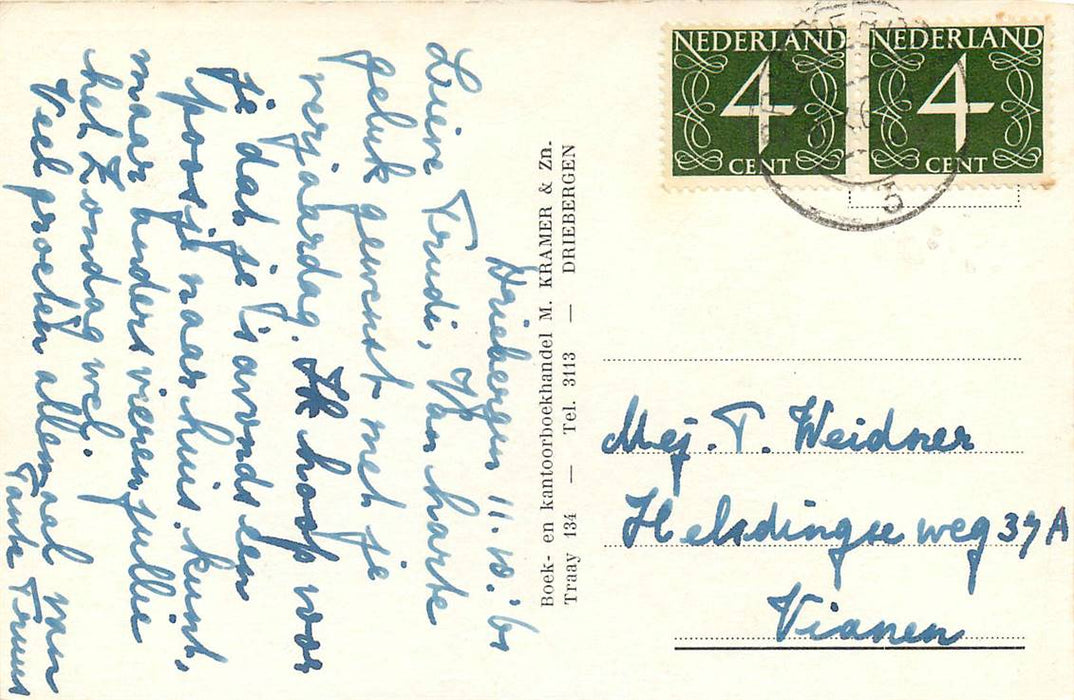 Driebergen 11.10.'61
Lieve Trudi, Van harte
geluk gewenst met je
verjaardag. Ik hoop voor
je dat je 's avonds een
poosje naar huis kunt,
maar anders vieren jullie
het Zondag wel.
Veel groeten allemaal van
Tante Truus
Boek- en kantoorboekhandel M. KRAMER & Zn.
Traay 134 — Tel. 3113 — DRIEBERGEN
NEDERLAND NEDERLAND
4 4
CENT CENT
Mej. T. Weidner
Helsdingse weg 37A
Vianen